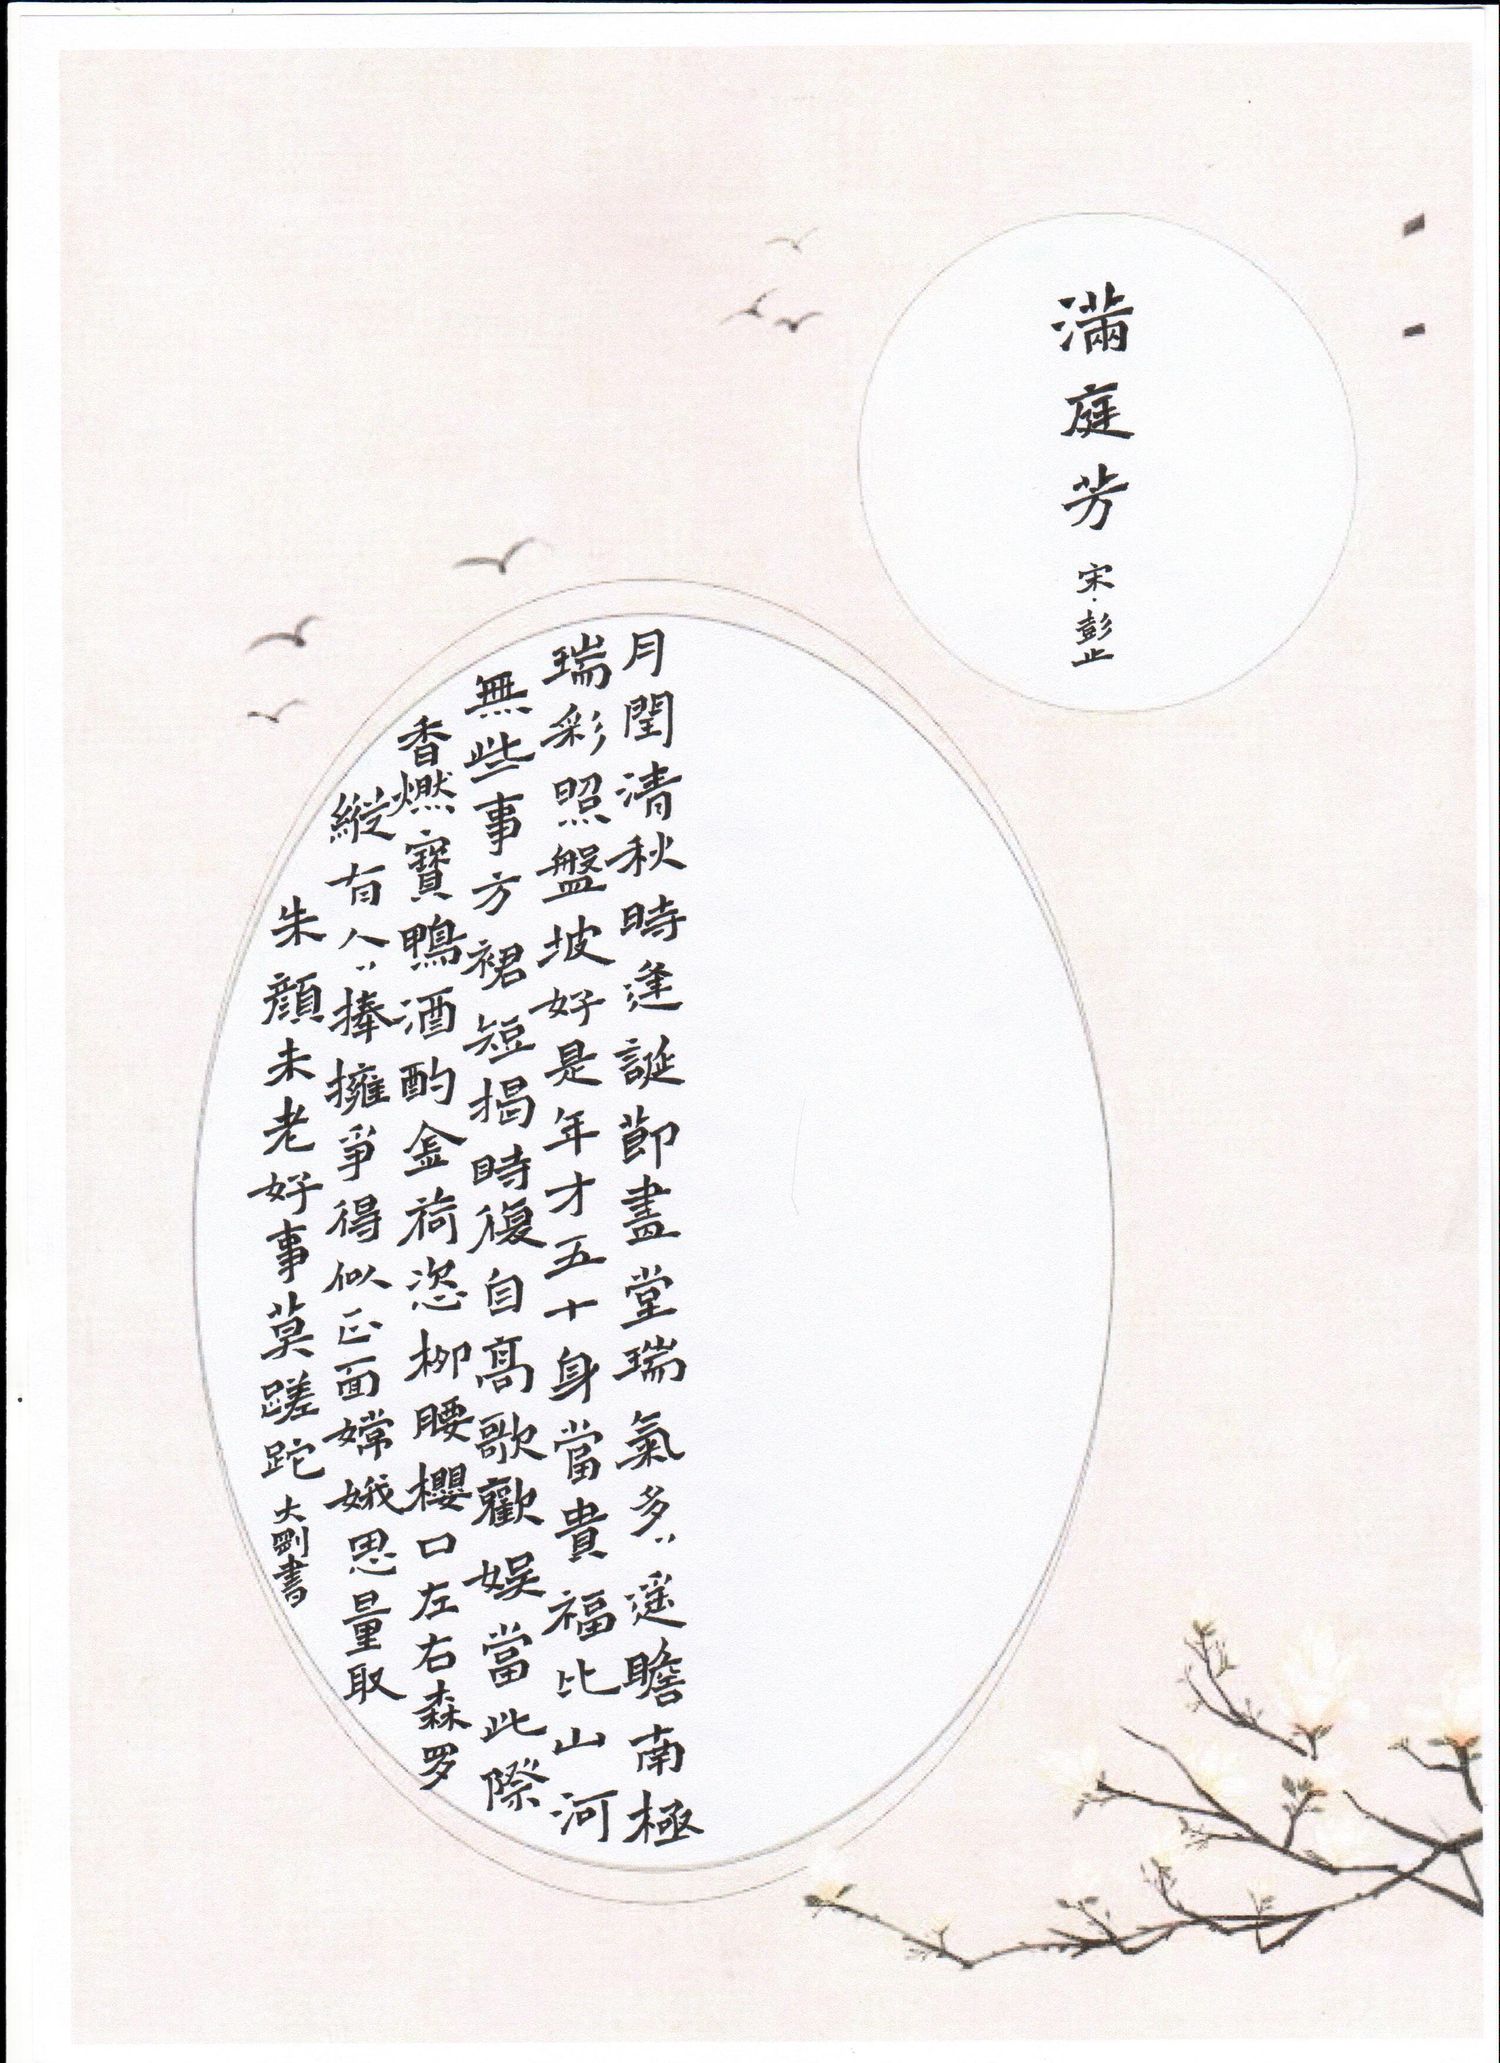 滿庭芳
宋·彭止
月閏清秋時逢誕節畫堂瑞氣多〻遥瞻南極
瑞彩照盤坡好是年才五十身當貴福比山河
無些事方裙短揭時復自高歌歡娱當此際
香燃寶鴨酒酌金荷恣柳腰櫻口左右森罗
縱有人〻捧擁爭得似正面嫦娥思量取
朱顔未老好事莫蹉跎
大劉書